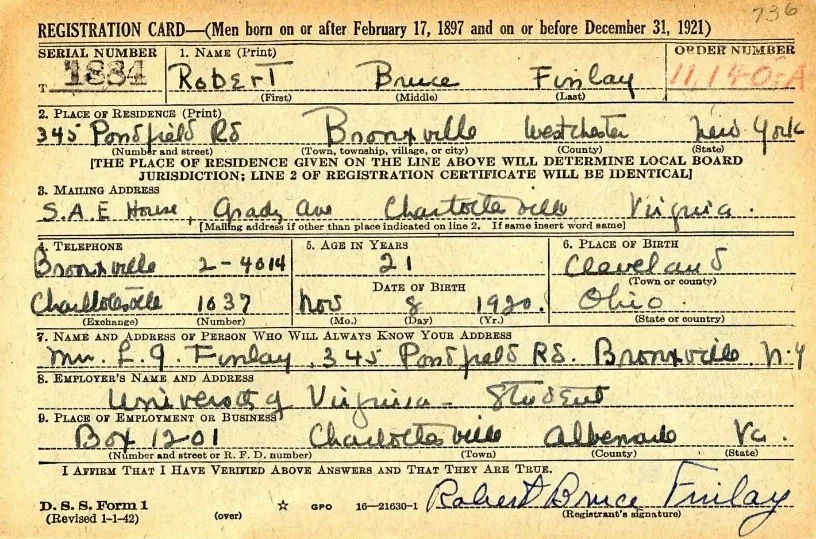 736
REGISTRATION CARD—(Men born on or after February 17, 1897 and on or before December 31, 1921)
SERIAL NUMBER 1. NAME (Print) ORDER NUMBER
T 1834 ROBERT Bruce Finlay 11,140-A
(First) (Middle) (Last)
2. PLACE OF RESIDENCE (Print)
345 Pondfield Rd Bronxville Westchester New York
(Number and street) (Town, township, village, or city) (County) (State)
[THE PLACE OF RESIDENCE GIVEN ON THE LINE ABOVE WILL DETERMINE LOCAL BOARD
JURISDICTION; LINE 2 OF REGISTRATION CERTIFICATE WILL BE IDENTICAL]
3. MAILING ADDRESS
S.A.E House, Grady Ave Charlottesville Virginia.
[Mailing address if other than place indicated on line 2. If same insert word same]
4. TELEPHONE 5. AGE IN YEARS 6. PLACE OF BIRTH
Bronxville 2-4014 21 Cleveland
DATE OF BIRTH (Town or county)
Charlottesville 1037 Nov 8 1920. Ohio
(Exchange) (Number) (Mo.) (Day) (Yr.) (State or country)
7. NAME AND ADDRESS OF PERSON WHO WILL ALWAYS KNOW YOUR ADDRESS
L. G. Finlay, 345 Pondfield Rd. Bronxville N.Y
8. EMPLOYER'S NAME AND ADDRESS
University of Virginia - Student
9. PLACE OF EMPLOYMENT OR BUSINESS
Box 1201 Charlottesville Albemarle Va.
(Number and street or R. F. D. number) (Town) (County) (State)
I AFFIRM THAT I HAVE VERIFIED ABOVE ANSWERS AND THAT THEY ARE TRUE.
D. S. S. Form 1 ☆ GPO 16—21630-1 Robert Bruce Finlay
(Revised 1-1-42) (over) (Registrant's signature)